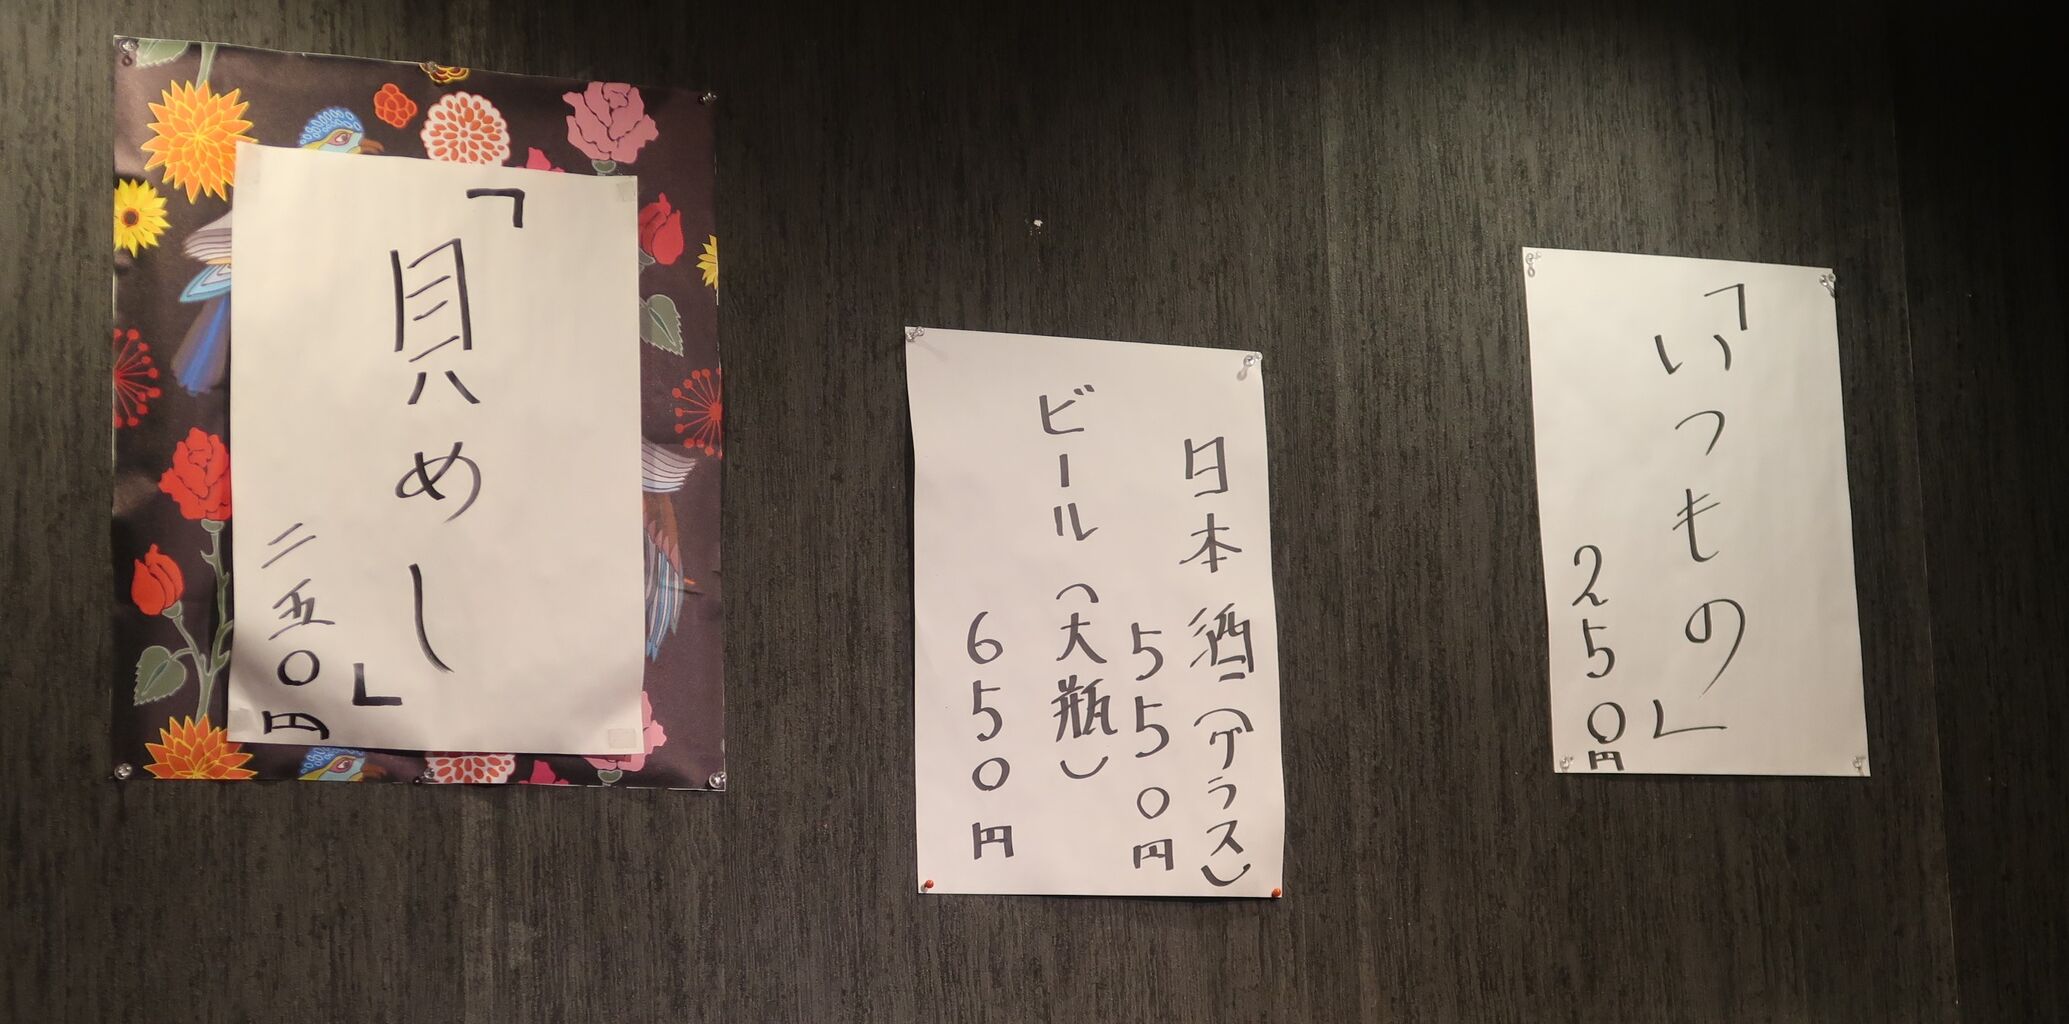 「いつもの」
250円
日本酒(グラス)
550円
ビール(大瓶)
650円
「貝めし」
二五〇円